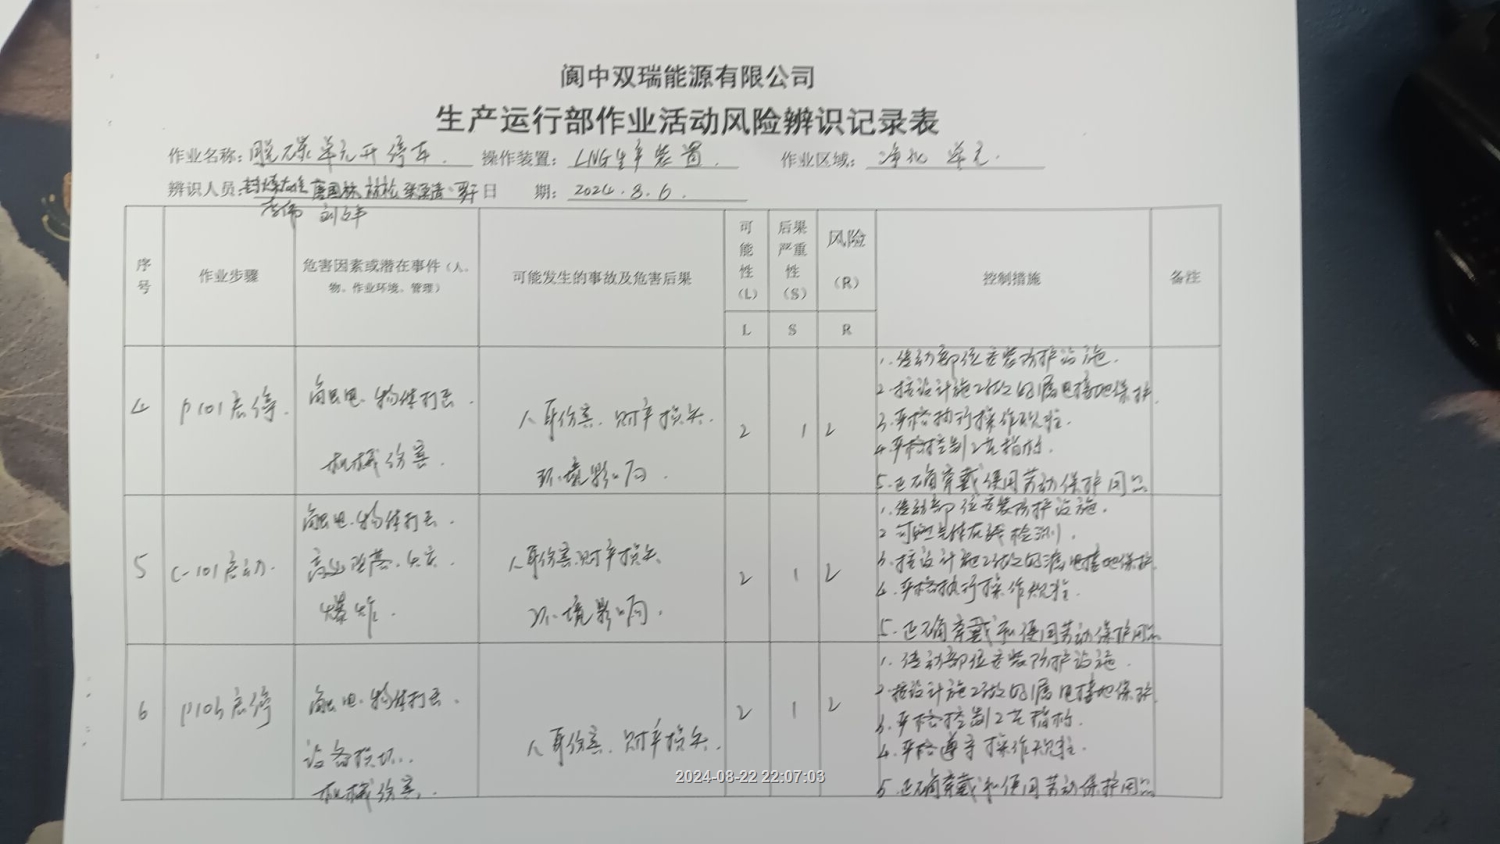 阆中双瑞能源有限公司
生产运行部作业活动风险辨识记录表
作业名称: 脱碳单元开停车. 操作装置: LNG生产装置 作业区域: 净化单元.
辨识人员: 日 期: 2024.8.6.
李伟
序号 作业步骤 危害因素或潜在事件(人、物、作业环境、管理) 可能发生的事故及危害后果 可能性(L) 后果严重性(S) 风险(R) 控制措施 备注
L S R
4 P101启停. 触电. 物体打击.
机械伤害.
人身伤害. 财产损失.
环境影响.
2 1 2
1. 传动部位安装防护设施.
2. 按设计施工接地保护.
3. 严格执行操作规程.
4. 严格控制工艺指标.
5. 正确穿戴使用劳动保护用品
5 C-101启动. 触电. 物体打击.
高处坠落. 火灾.
爆炸.
人身伤害. 财产损失.
环境影响.
2 1 2
1. 传动部位安装防护设施.
2 可燃气体在线检测.
3. 按设计施工漏电接地保护.
4. 严格执行操作规程.
5. 正确穿戴和使用劳动保护用品
6 P106启停 触电. 物体打击.
设备损坏.
机械伤害.
人身伤害. 财产损失.
2 1 2
1. 传动部位安装防护设施.
2. 按设计施工漏电接地保护.
3. 严格控制工艺指标.
4. 严格遵守操作规程.
5. 正确穿戴和使用劳动保护用品
2024-08-22 22:07:03